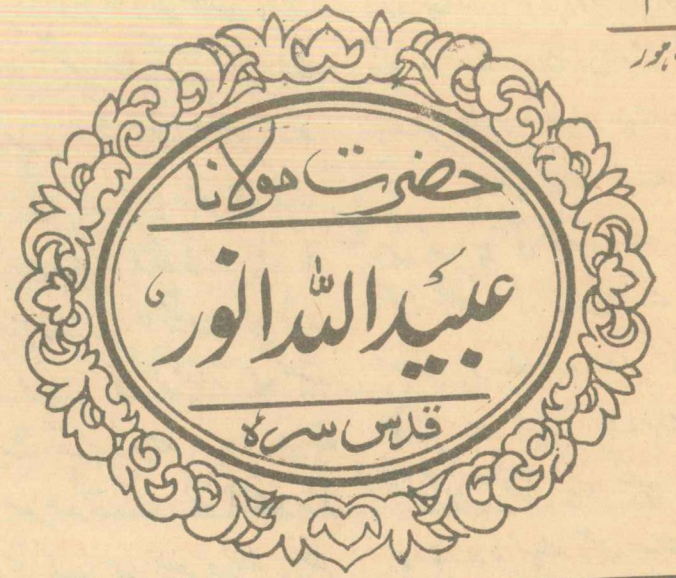 حضرت مولانا
عبید اللہ انور
قدس سرہ